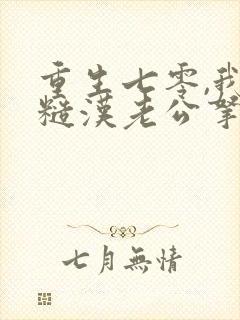 重生七零,我
糙漢老公拏
七月無情